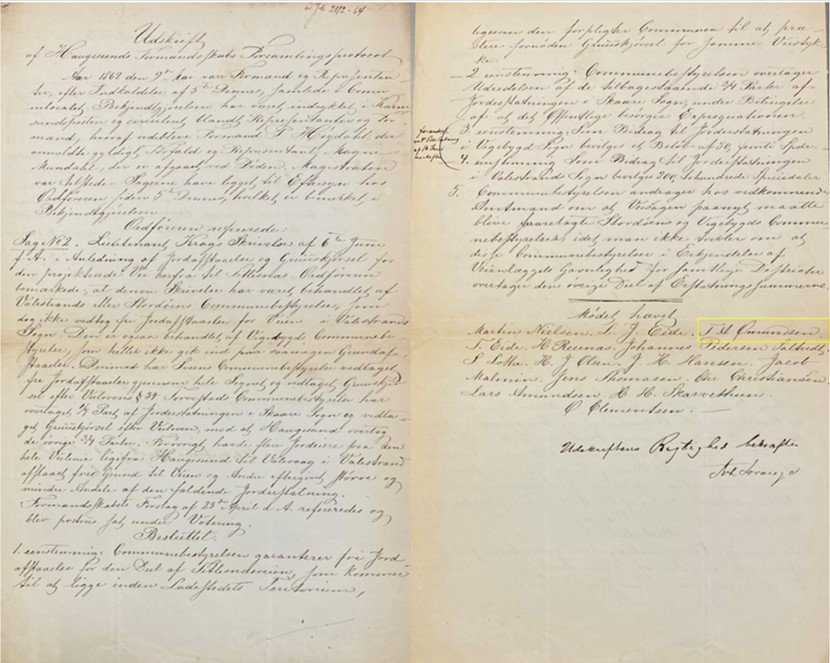 Udskrift
af Haugesunds Formandskabs Forsamlingsprotocol
Aar 1869 den 9de var Formand og Repræsentan-
ter, efter Indkaldelse af 5te Dennes, samlede i Comu-
nelocalet. Bekjendtgjørelsen har været indrykket i Karm-
sundsposten og circuleret blandt Repræsentanter og For-
mænd, hvoraf udebleve Formand P. Høydahl der
anmeldte gyldigt Forfald og Repræsentant Magne
Mundahl, der er afgaaet ved Døden. Magistraten
var tilstede. Sagerne have ligget til Eftersyn hos
Ordføreren siden 5te Dennes, hvilket er bemærket i
Bekjendtgjørelsen
Ordføreren refererede:
Sag No 2. Lieutenant Krags Skrivelse af 6te Juni
f. A. i Anledning af Jordafstaaelse og Gruuskjørsel for
den projekterede Vei herfra til Tittelsnæs. Ordføreren
bemærkede, at denne Skrivelse har været behandlet af
Valestrands eller Stordøens Communebestyrelse, som
dog ikke vedtog fri Jordafstaaelse for Veien i Valestrands
Sogn. Den er ogsaa behandlet af Vigebygds Communebe-
styrelse, som heller ikke gik ind paa saadan Grundaf-
staaelse. Derimod har Communebestyrelse vedtaget
fri Jordafstaaelse gjennem hele Sognet og vedtaget Gruuskjør-
sel efter Veilovens § 39. Torvestads Communebestyrelse har
overtaget 1/4 Part af Jorderstatningen i Skaare Sogn og vedta-
get Gruuskjørsel efter Veiloven, mod at Haugesund overtog
de øvrige 3/4 Parter. Forøvrigt havde flere Jordeiere paa den
hele Veilinie ligefra Haugesund til Valevaag i Valestrand
afstaaet fri Grund til Veien og Andre eftergivet større og
mindre Andele af den faldende Jorderstatning.
Formandskabets Forslag af 23de April d. A. refereredes og
blev punktvis sat under Votering.
Besluttet.
1. eenstemmig: Communebestyrelsen garanterer fri Jord-
afstaaelse for den Deel af Tittelsnæsveien, som kommer
til at ligge inden Ladestedets Territorium,
ligesom den forpligter Communen til at præ-
stere fornøden Gruuskjørsel for samme Veistyk-
ke.
2 eenstemmig: Communebestyrelsen overtager
Udredelsen af de tilbagestaaende 3/4 Parter af
Jorderstatningen i Skaare Sogn, under Betingelse
af at det Offentlige besørger Expropriationen.
3. eenstemmig: Som Bidrag til Jorderstatningen
i Vigebygd Sogn bevilges et Beløb af 50 femti Spdr.
4. eenstemmig: Som Bidrag til Jorderstatningen
i Valestrands Sogn bevilges 200 tohundrede Speciedaler
5. Communebestyrelsen andrager hos vedkommende
Amtmand om at Veisagen paanyt maatte
blive forelagte Stordøens og Vigebygds Commu-
nebestyrelser, idet man ikke tvivler om at
disse Communebestyrelser i Erkjendelse af
Veianlæggets Gavnlighed for samtlige Distrikter
overtager den øvrige Del af Erstatningssummerne.
Mødet hævet
Martin Nielsen. L. J. Eide. T. A. Omundsen.
T. Eide. H. Reinas. Johannes Pedersen Tallvidt.
S. Lothe. H. J. Olsen. J. H. Hansen. Jacob
Malmin. Jens Thomassen. Chr Christiansen
Lars Amundsen H. H. Skarvethun.
O Clementsen.
Udskriftens Rigtighed bekræfter